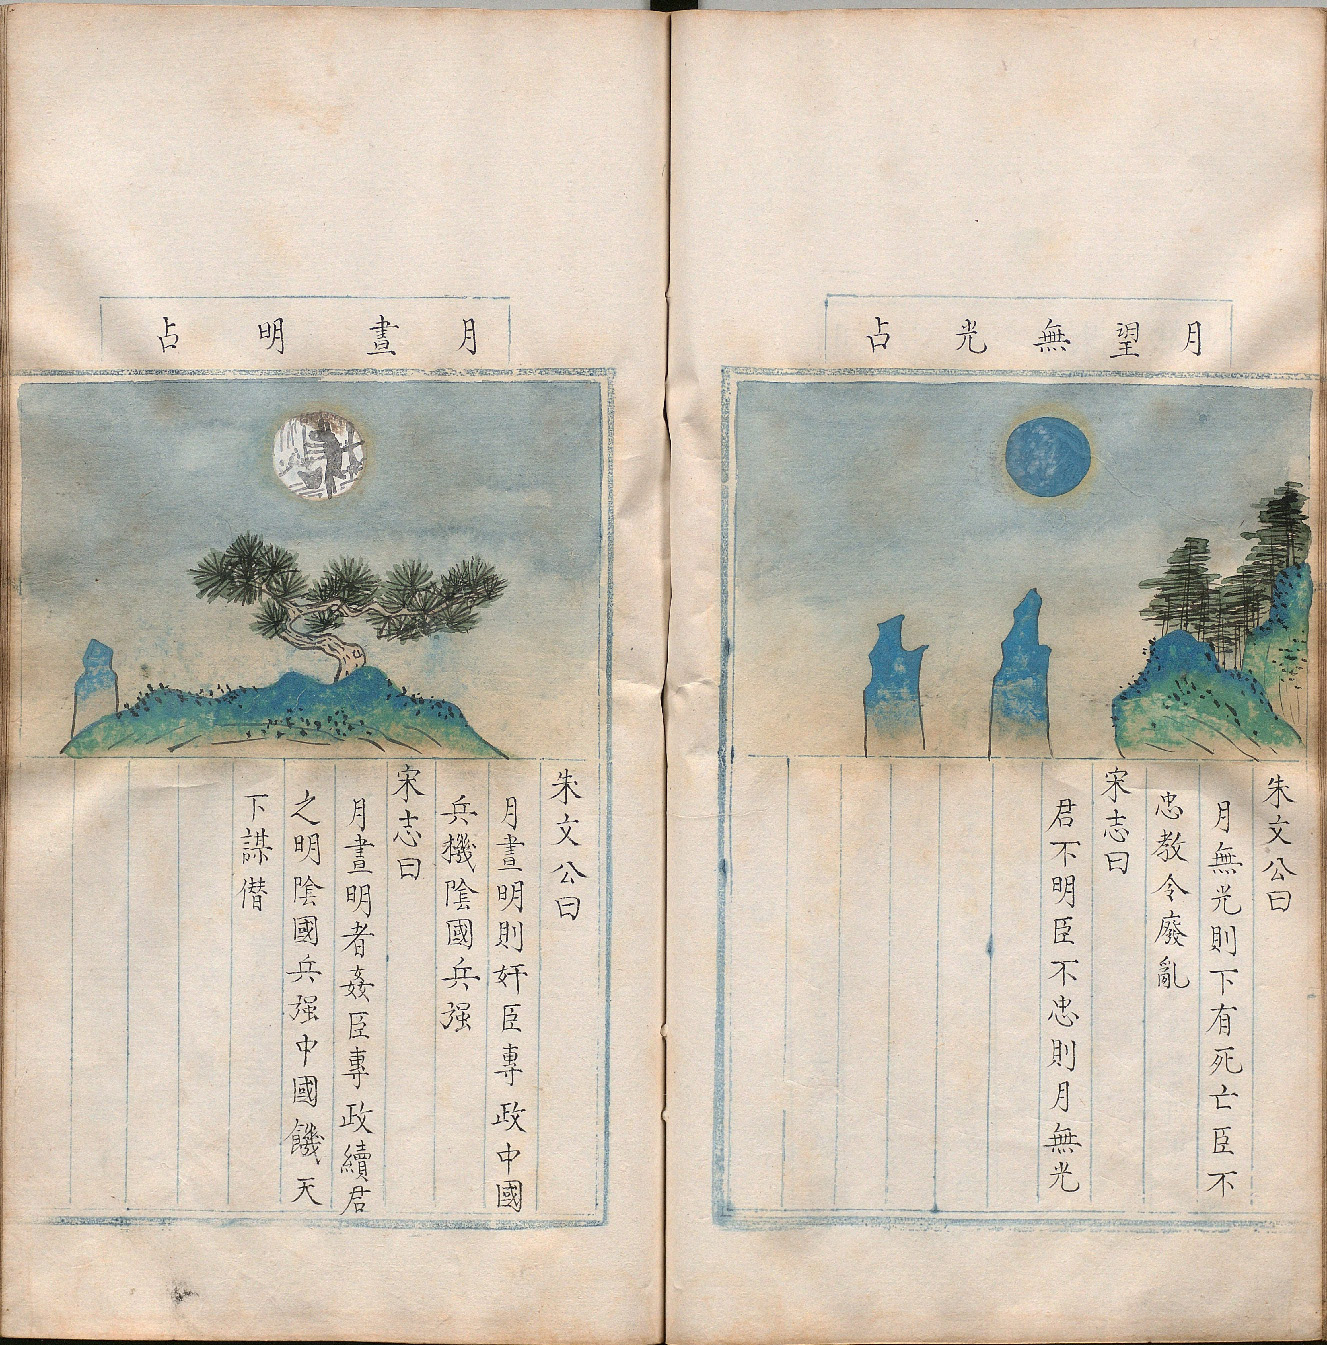 月望無光占
朱文公曰
月無光則下有死亡臣不
忠教令廢亂
宋志曰
君不明臣不忠則月無光
月晝明占
朱文公曰
月晝明則奸臣專政中國
兵機陰國兵强
宋志曰
月晝明者姦臣專政續君
之明陰國兵强中國饑天
下謀僭